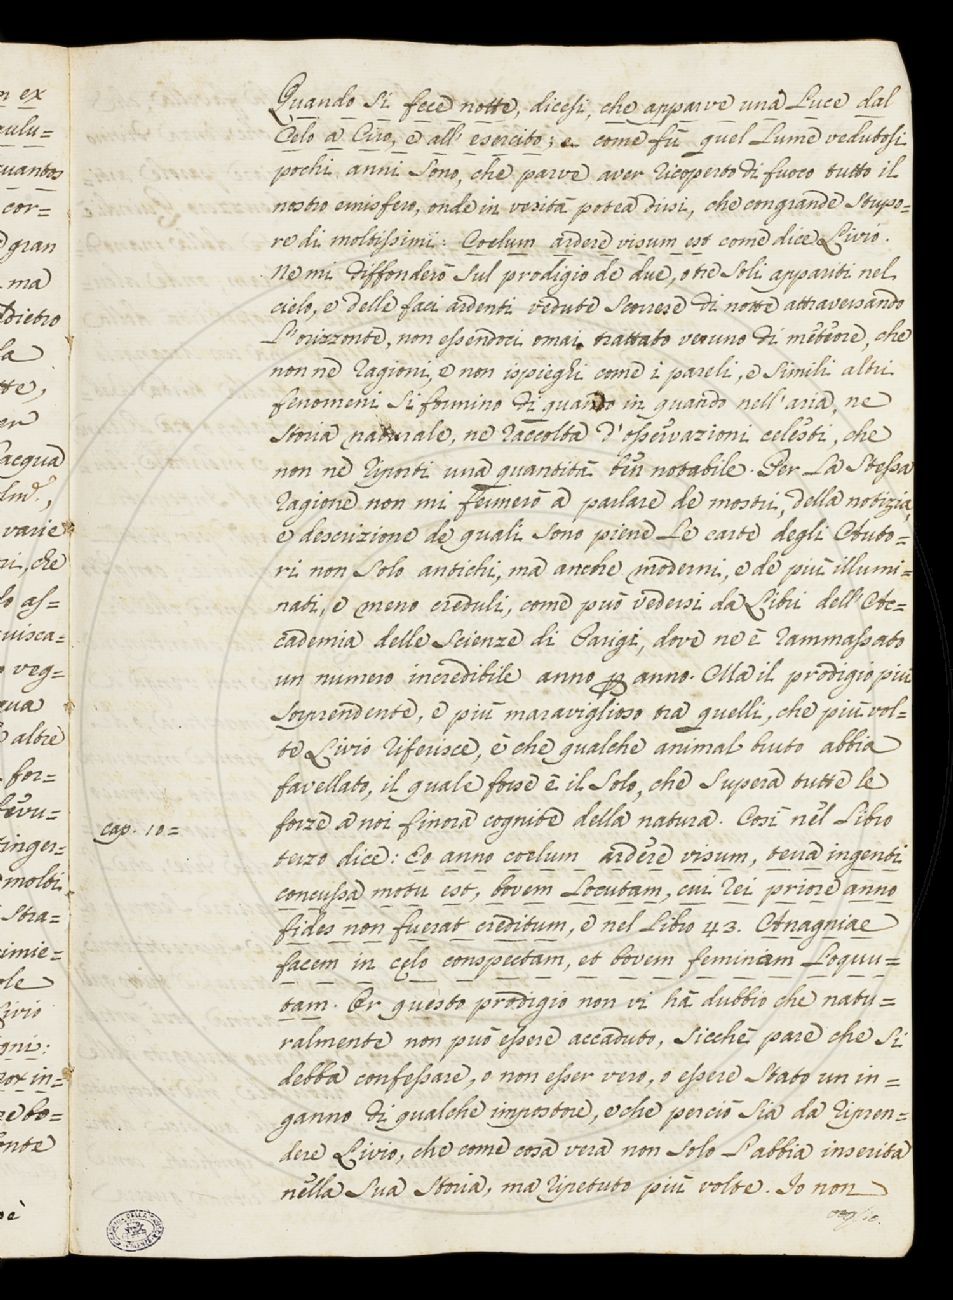 Quando si fece notte, dicesi, che apparve una Luce dal
Celo a Ciro, e all' esercito; e come fù quel Lume vedutosi
pochi anni sono, che parve aver ricoperto di fuoco tutto il
nostro emisfero, onde in verità potea dirsi, che con grande stupo=
re di moltissimi: Coelum ardere visum est come dice Livio.
Ne mi diffonderò sul prodigio de due, o tre Soli appariti nel
cielo, e delle faci ardenti vedute scorrere di notte attraversando
l'orizzonte, non essendoci omai trattato veruno di meteore, che
non ne ragioni, e non ispieghi come i pareli, e simili altri
fenomeni si formino di quando in quando nell'aria, ne
storia naturale, ne raccolta d'osservazioni celesti, che
non ne riporti una quantità ben notabile. Per la stessa
ragione non mi fermerò a parlare de mostri, della notizia,
e descrizione de quali sono piene Le carte degli Auto=
ri non solo antichi, ma anche moderni, e de più illumi=
nati, e meno creduli, come può vedersi da Libri dell'Ac=
cademia delle Scienze di Parigi, dove ne è rammassato
un numero incredibile anno p anno. Ma il prodigio più
sorprendente, e più maraviglioso tra quelli, che più vol=
te Livio riferisce, è che qualche animal bruto abbia
favellato, il quale forse è il solo, che supera tutte le
forze a noi finora cognite della natura. Così nel Libro
cap. 10=
terzo dice: Eo anno coelum ardere visum, terra ingenti
concussa motu est, bovem Locutam, cui rei priore anno
fides non fuerat creditum, e nel Libro 43. Anagniae
facem in celo conspectam, et bovem feminam Loquu=
tam. Or questo prodigio non vi hà dubbio che natu=
ralmente non può essere accaduto, sicchè pare che si
debba confessare, o non esser vero, o essere stato un in=
ganno di qualche impostore, e che perciò sia da ripren=
dere Livio, che come cosa vera non solo l'abbia inserita
nella sua storia, ma ripetuto più volte. Io non